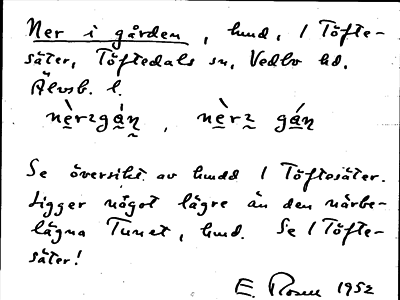 Ner i gården, hmd, 1 Töfte-
säter, Töftedals sn, Vedbo hd.
Älvsb. l.
nè̱rzgá̱n̰, nè̱rz gá̱n
Se översikt av hmdd 1 Töftesäter.
Ligger något lägre än den närbe-
lägna Tunet, hmd. Se 1 Töfte-
säter!
E. Rosen 1952